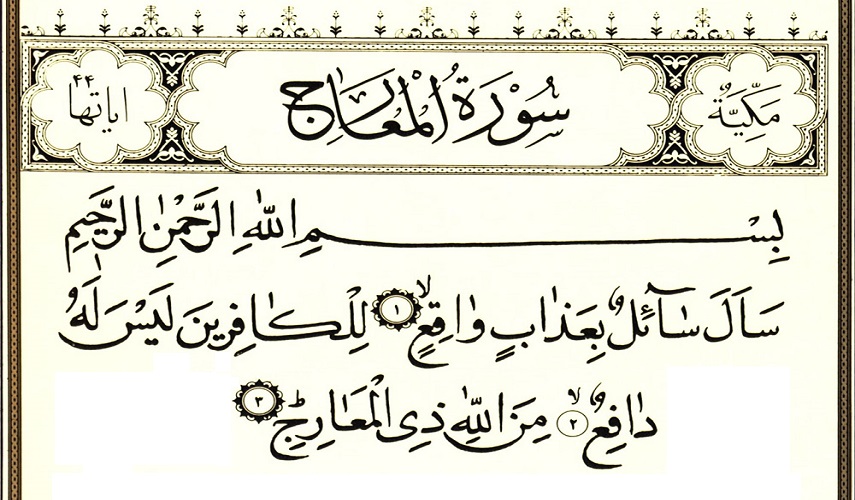 مَكِّيَّةٌ سُوْرَةُ الْمَعَارِجِ اٰيَاتُهَا ٤٤
بِسْمِ اللّٰهِ الرَّحْمٰنِ الرَّحٖيمِ
سَاَلَ سَٓائِلٌ بِعَذَابٍ وَاقِعٍۙ ﴿١﴾ لِلْكَافِرٖينَ لَيْسَ لَهُ
دَافِعٌۙ ﴿٢﴾ مِنَ اللّٰهِ ذِى الْمَعَارِجِؕ ﴿٣﴾